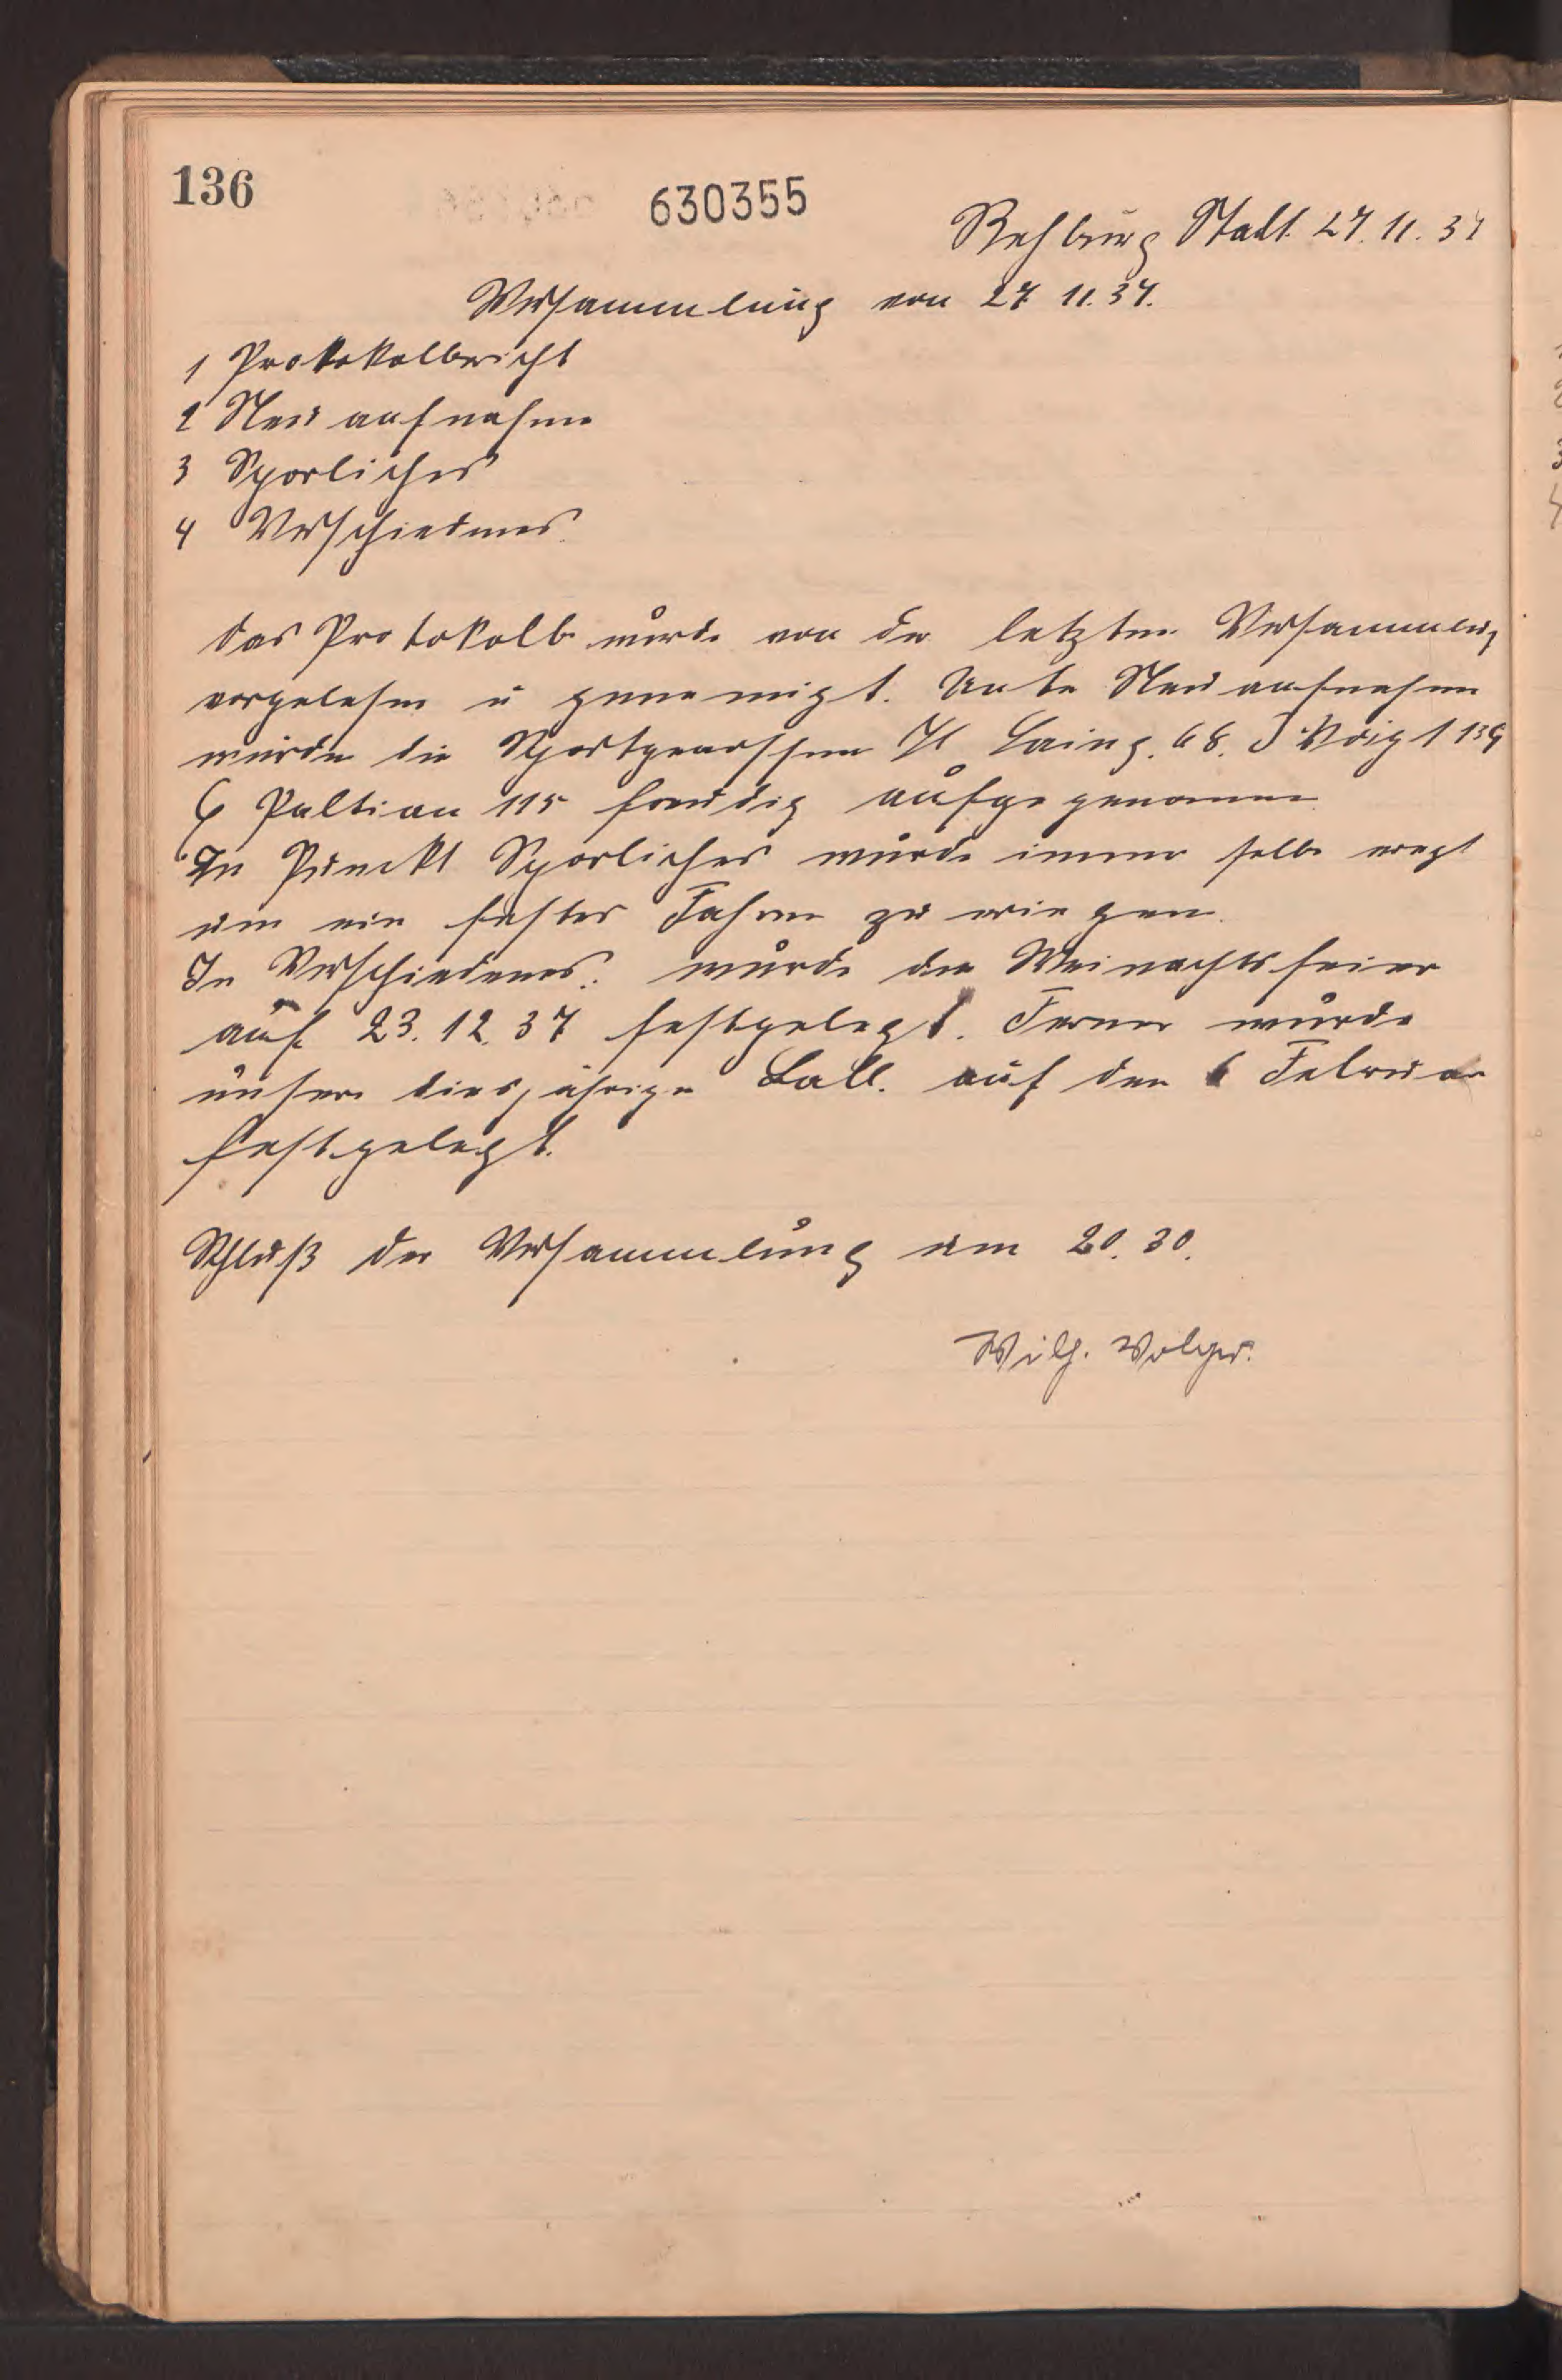 136
630355
Rehburg Stadt 27. 11. 37
Versammlung von 27 11. 37.
1 Protokolbericht
2 Neu aufnahme
3 Sporliches
4 Verschiedenes.
das Protokoll wurde von der letzten Versammlung
vorgelesen u genemigt. Unte Neu aufnahmen
wurden die Sportgenossen H 68. J Voigt 139
115 freudig aufge genommen
In Punckt Sporliches wurde immer selbe
um ein Fahren zu
In Verschiedenes: wurde die Weinachtsfeier
auf 23. 12. 37 festgelegt. Ferner wurde
unsere diesjährige Ball. auf den 6 Februar
festgelegt.
Schluß der Versammlung um 20. 30.
Wilh. Volger.